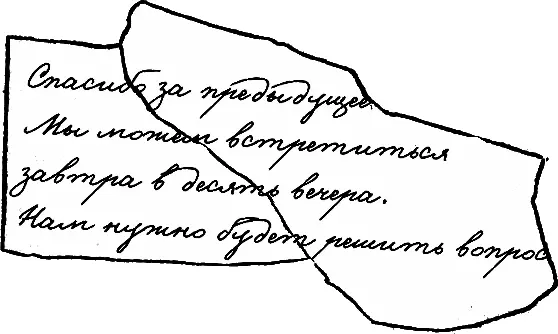 Спасибо за предыдущее
Мы можем встретиться
завтра в десять вечера.
Нам нужно будет решить вопрос